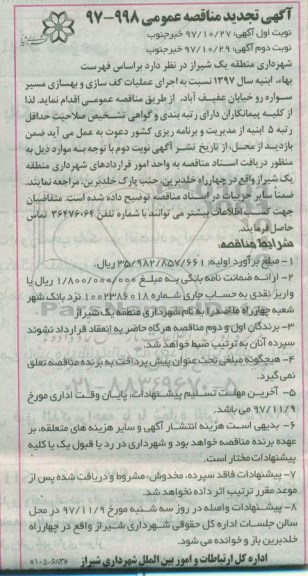 آگهی تجدید مناقصه عمومی ۹۹۸-۹۷
نوبت اول آگهی: ۹۷/۱۰/۲۷ خبرجنوب
نوبت دوم آگهی: ۹۷/۱۰/۲۹ خبرجنوب
شهرداری منطقه یک شیراز در نظر دارد براساس فهرست
بهاء ابنیه سال ۱۳۹۷ نسبت به اجرای عملیات کف سازی و بهسازی مسیر
سواره رو خیابان عفیف آباد، از طریق مناقصه عمومی اقدام نماید. لذا
از کلیه پیمانکاران دارای رتبه بندی و گواهی تشخیص صلاحیت حداقل
رتبه ۵ ابنیه از مدیریت و برنامه ریزی کشور دعوت به عمل می آید ضمن
بازدید از محل، از تاریخ نشر آگهی نوبت دوم با توجه به موارد ذیل به
منظور دریافت اسناد مناقصه به واحد امور قراردادهای شهرداری منطقه
یک شیراز واقع در چهارراه خلدبرین جنب پارک خلدبرین، مراجعه نمایند.
ضمناً سایر جزئیات در اسناد مناقصه توضیح داده شده است. متقاضیان
جهت کسب اطلاعات بیشتر می توانند با شماره تلفن ۳۶۴۷۶۰۶۴ تماس
حاصل فرمایند.
شرایط مناقصه:
۱- مبلغ برآورد اولیه: ۳۵/۹۸۲/۸۵۷/۶۶۱ ریال.
۲- ارائه ضمانت نامه بانکی به مبلغ ۱/۸۰۰/۰۰۰/۰۰۰ ریال یا
واریز نقدی به حساب جاری شماره ۱۰۰۲۳۸۶۰۱۸ نزد بانک شهر
شعبه چهارراه ملاصدرا به نام شهرداری منطقه یک شیراز
۳- برندگان اول و دوم مناقصه هرگاه حاضر به انعقاد قرارداد نشوند
سپرده آنان به ترتیب ضبط خواهد شد.
۴- هیچگونه مبلغی تحت عنوان پیش پرداخت به برنده مناقصه تعلق
نمی گیرد.
۵- آخرین مهلت تسلیم پیشنهادات، پایان وقت اداری مورخ
۹۷/۱۱/۹ می باشد.
۶- بدیهی است هزینه انتشار آگهی و سایر هزینه های متعلقه، بر
عهده برنده مناقصه خواهد بود و شهرداری در رد یا قبول یک یا کلیه
پیشنهادات مختار است.
۷- پیشنهادات فاقد سپرده، مخدوش، مشروط و دریافت شده پس از
موعد مقرر ترتیب اثر داده نخواهد شد.
۸- پیشنهادات واصله در روز سه شنبه مورخ ۹۷/۱۱/۹ در محل
سالن جلسات اداره کل حقوقی شهرداری شیراز واقع در چهارراه
خلدبرین باز و خوانده می شود.
اداره کل ارتباطات و امور بین الملل شهرداری شیراز
۰۲۱-۸۸۳۴۹۶۷۰-۵